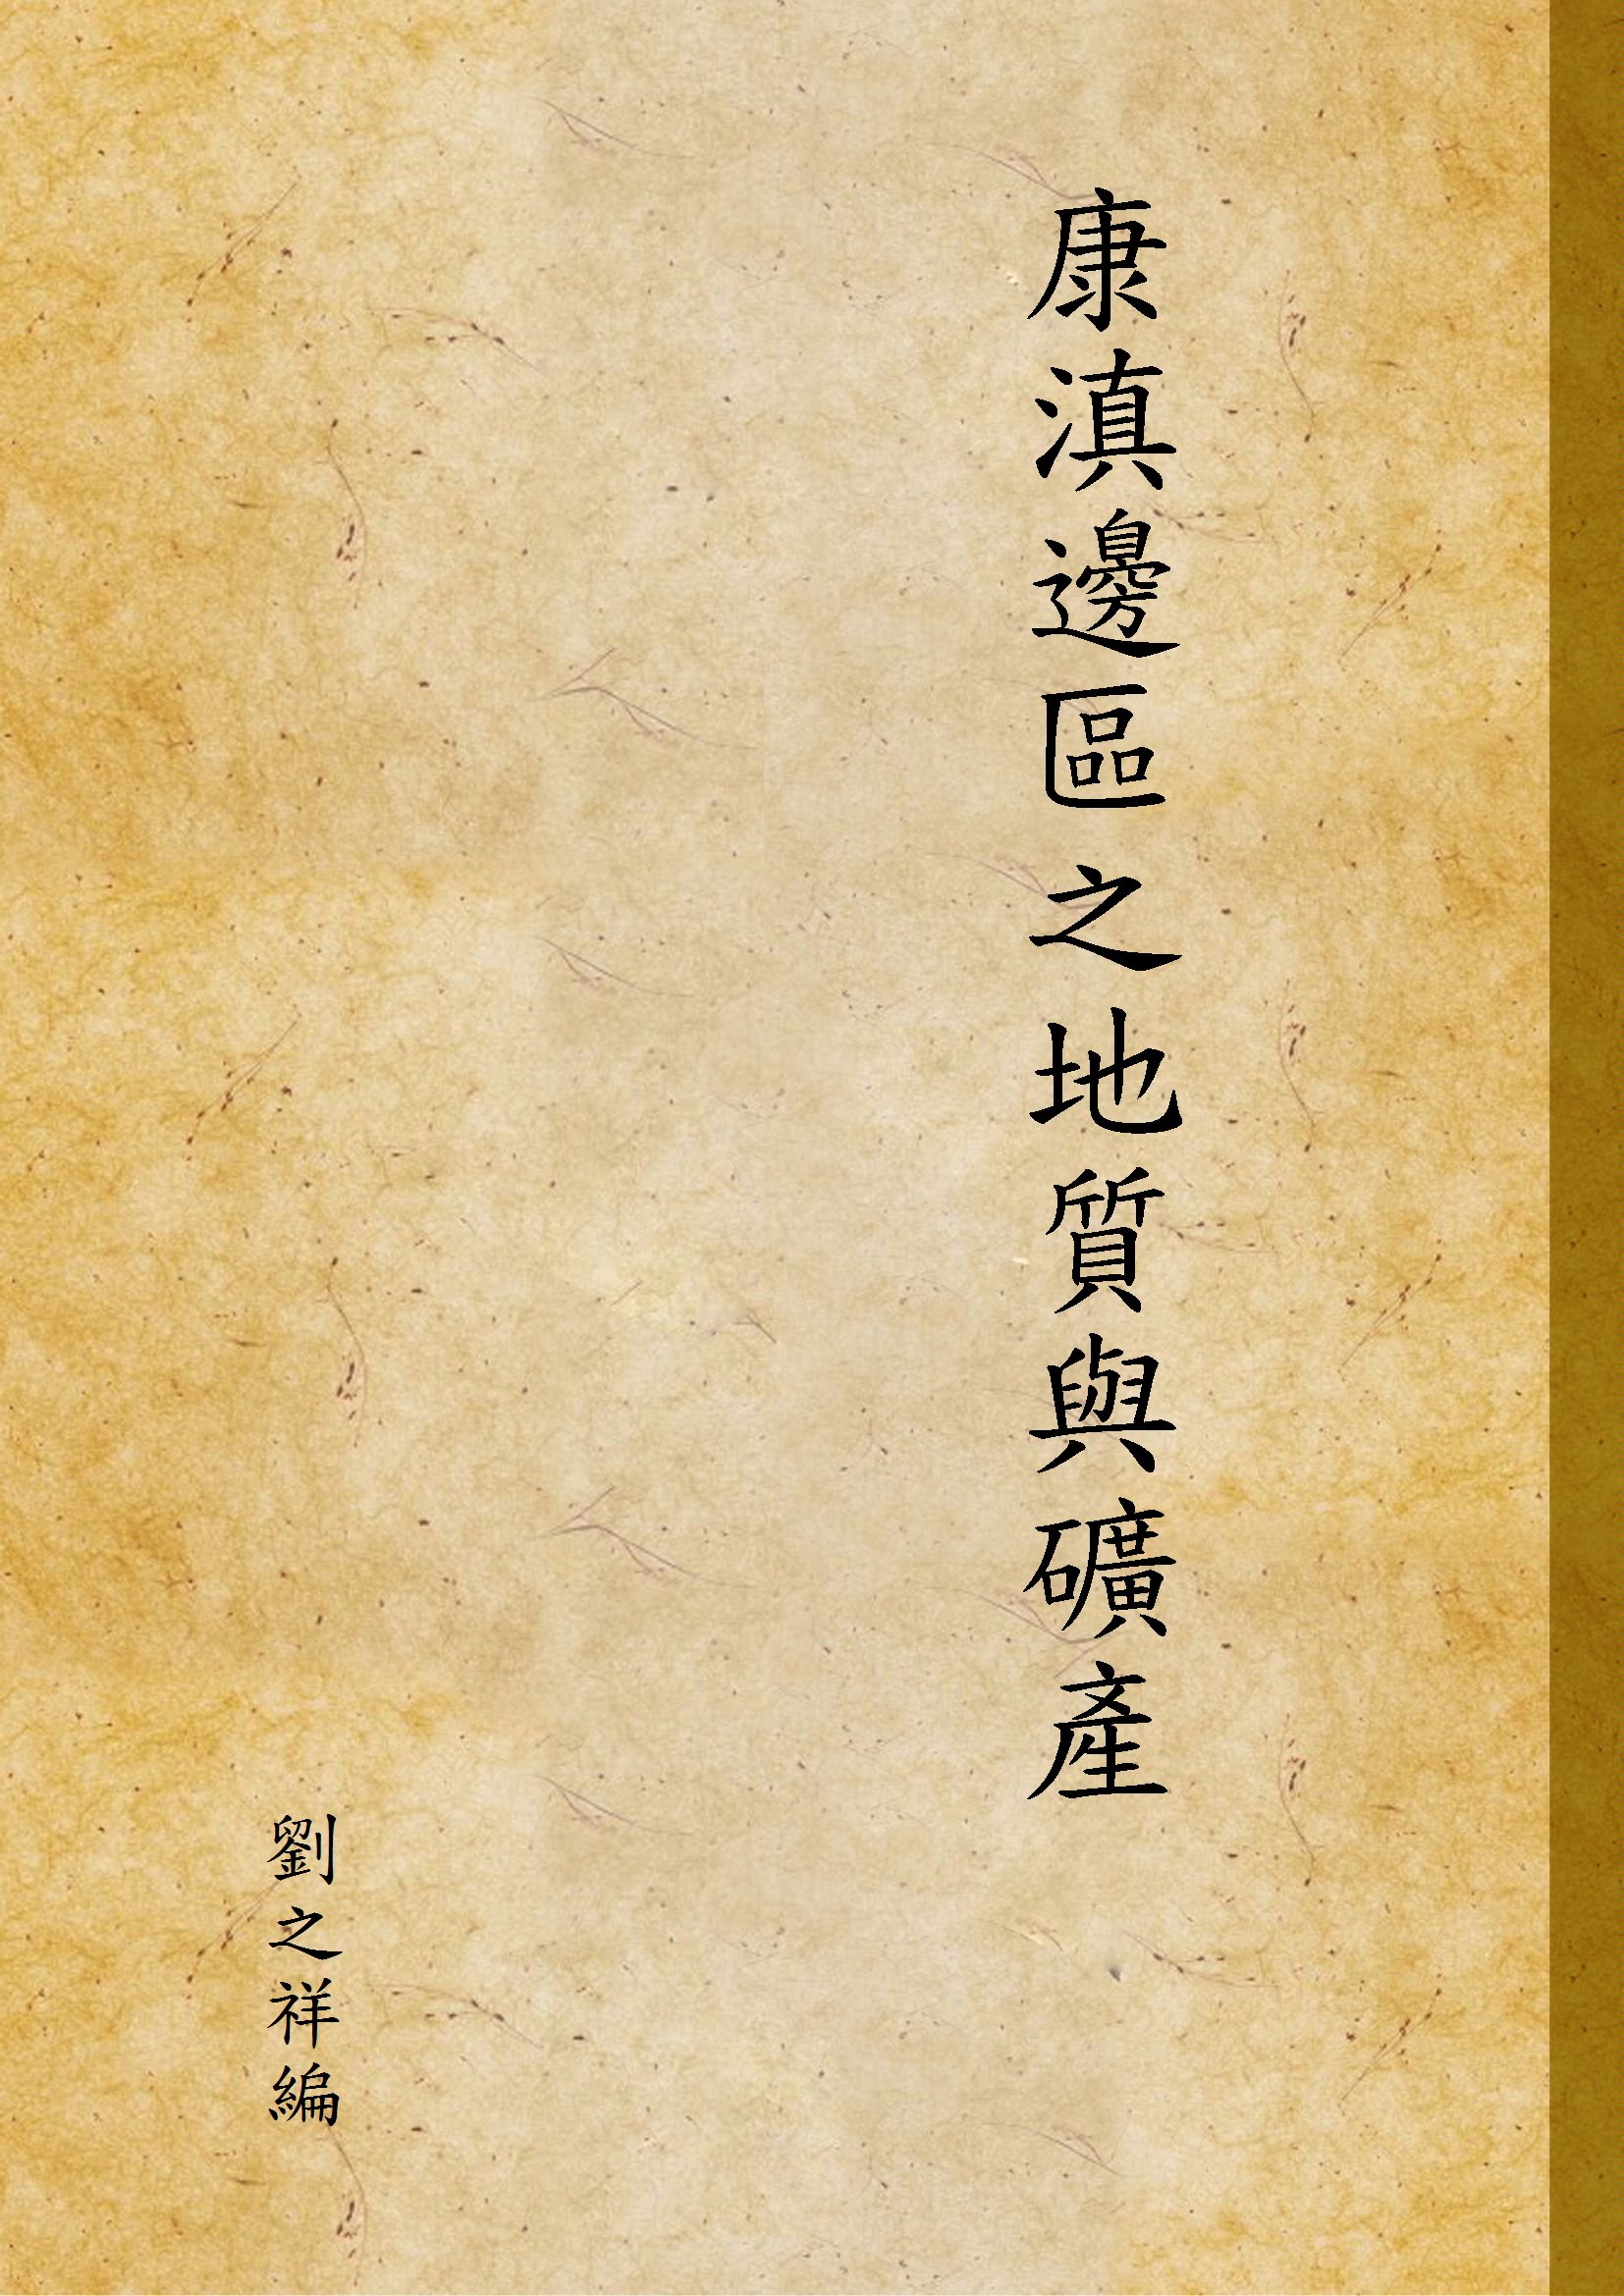 康滇邊區之地質與礦產
劉之祥編